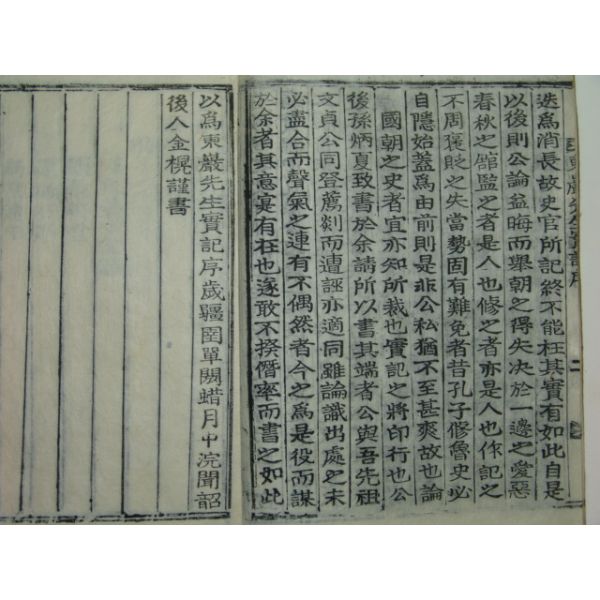 東巖先生實記序
二
迭爲消長故史官所記終不能枉其實有如此自是
以後則公論益晦而擧朝之得失决於一邊之愛惡
春秋之館監之者是人也修之者亦是人也作記之
不周褒貶之失當勢固有難免者昔孔子修魯史必
自隱始蓋爲由前則是非公私猶不至甚爽故也論
國朝之史者宜亦知所裁也實記之將印行也公
後孫炳夏致書於余請所以書其端者公與吾先祖
文貞公同登薦剡而遭誣亦適同雖論議出處之未
必盡合而聲氣之連有不偶然者今之爲是役而謀
於余者其意寔有在也遂敢不揆僭率而書之如此
以爲東巖先生實記序歲彊圉單閼蜡月中浣聞韶
後人金榥謹書